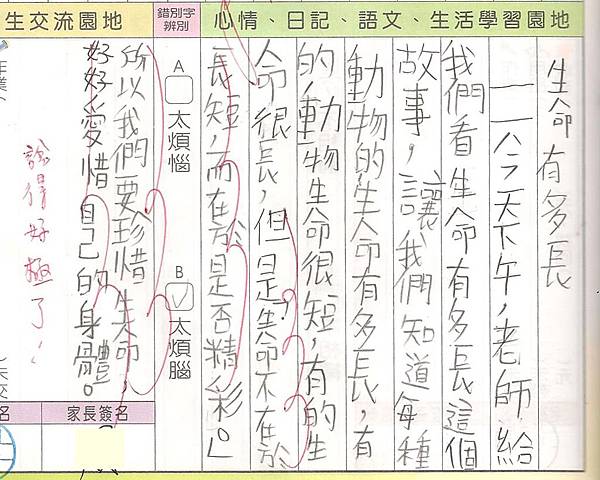 心情、日記、語文、生活學習園地
生命有多長
一一八今天下午,老師給
我們看生命有多長這個
故事,讓我們知道每種
動物的生命有多長,有
的動物生命很短,有的生
命很長,但是,生命不在於
長短,而在於是否精彩。」
錯別字
辨別
A
太煩惱
B
太煩腦
生交流園地
所以我們要珍惜生命,
好好愛惜自己的身體。
說得好極了!
家長簽名
名